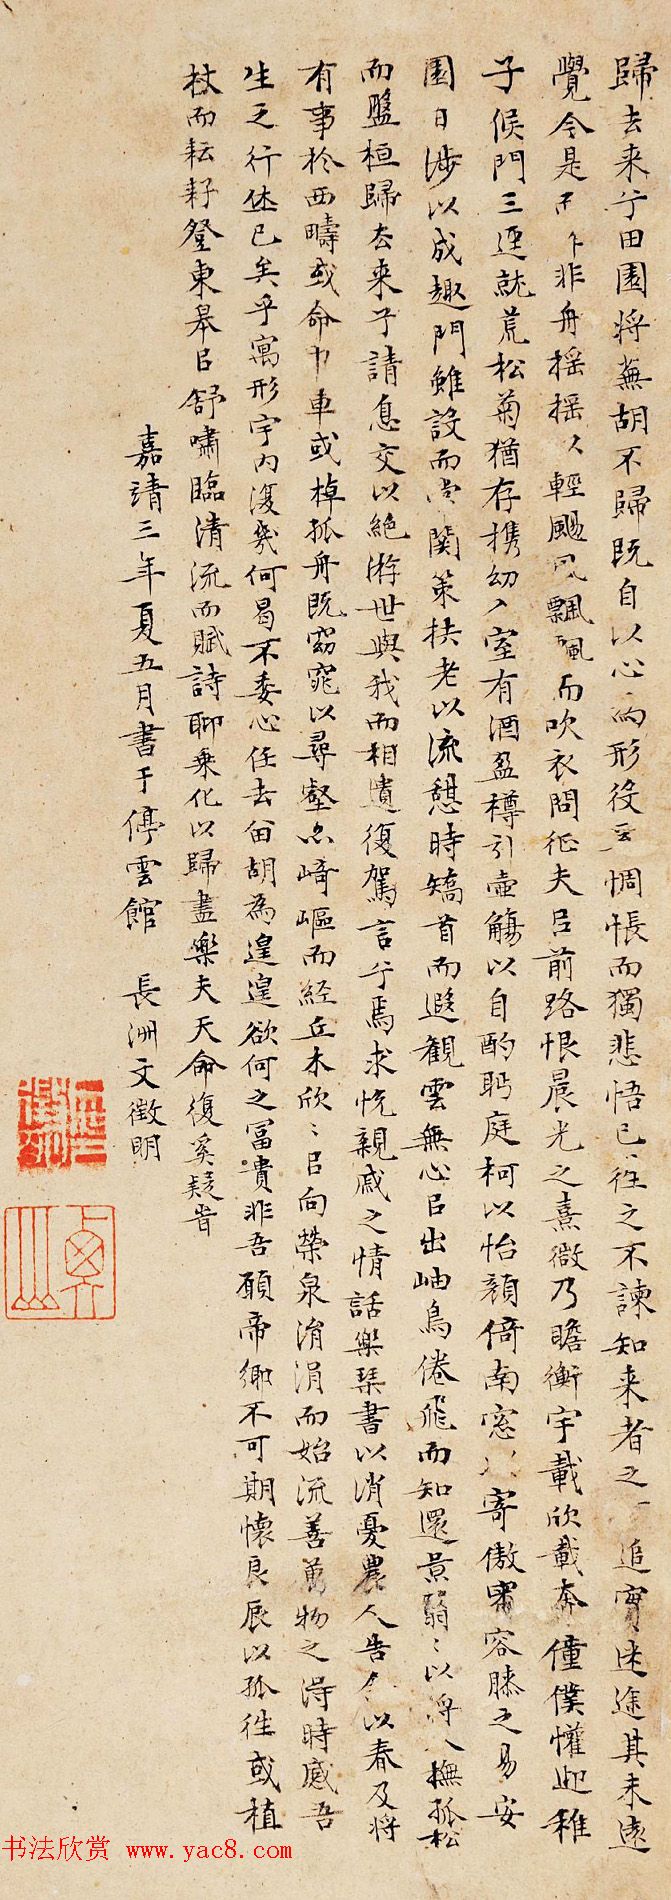 歸去来兮田園将蕪胡不歸既自以心為形役兮惆悵而獨悲悟已往之不諫知来者之可追實迷途其未遠
覺今是而昨非舟揺揺以輕颺風飄飄而吹衣問征夫㠯前路恨晨光之熹微乃瞻衡宇載欣載奔僮僕懽迎稚
子候門三逕就荒松菊猶存携幼入室有酒盈樽引壺觴以自酌眄庭柯以怡顔倚南窓以寄傲審容膝之易安
園日渉以成趣門雖設而常関策扶老以流憇時矯首而遐観雲無心㠯出岫鳥倦飛而知還景翳翳以将入撫孤松
而盤桓歸去来兮請息交以絶游世與我而相遺復駕言兮焉求悅親戚之情話樂琹書以消憂農人告余以春及将
有事於西疇或命巾車或棹孤舟既窈窕以尋壑亦崎嶇而経丘木欣〻㠯向榮泉涓涓而始流善萬物之得時感吾
生之行休已矣乎寓形宇内復幾何曷不委心任去留胡為遑遑欲何之冨貴非吾願帝鄉不可期懐良辰以孤往或植
杖而耘耔登東皋㠯舒嘯臨清流而賦詩聊乗化以歸盡樂夫天命復奚疑
嘉靖三年夏五月書于停雲館 長洲文徵明
书法欣赏 www.yac8.com